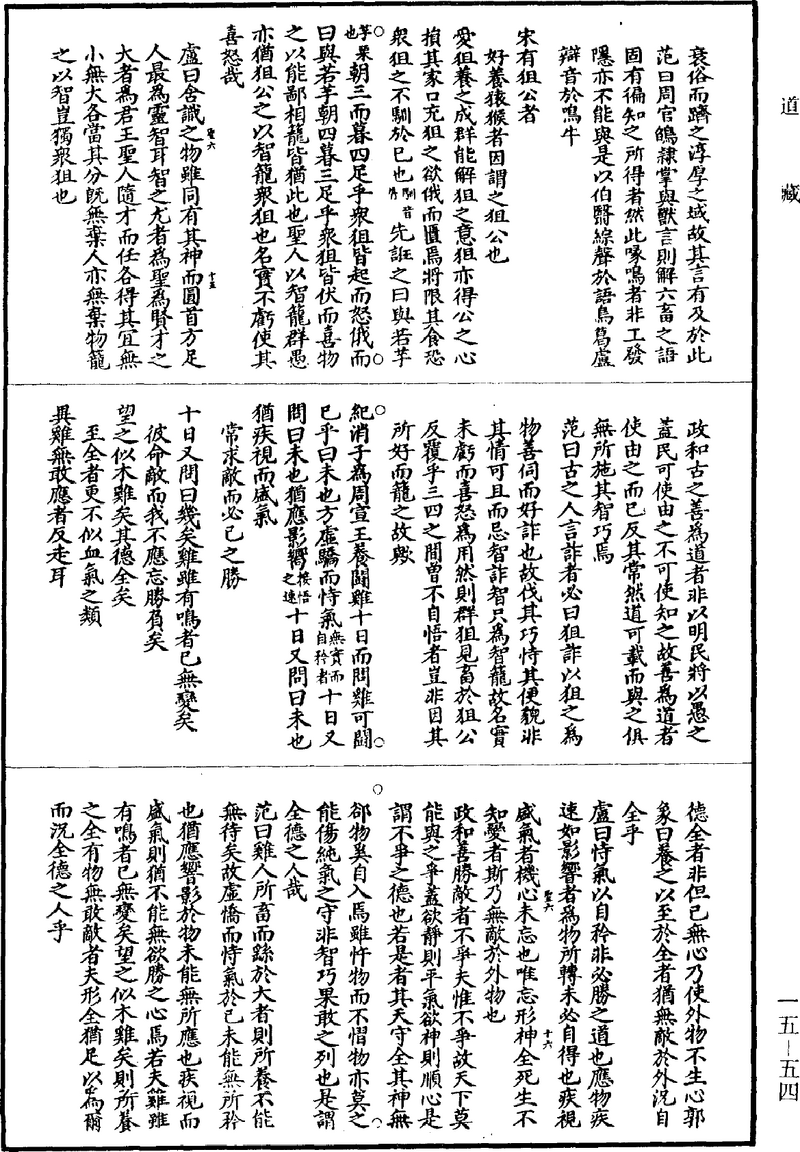 道藏
衰俗而躋之淳厚之域故其言有及於此
范曰周官䳑隸掌與獸言則解六畜之語
固有徧知之所得者然此喙鳴者非工發
隱亦不能與是以伯翳綜聲於語鳥葛盧
辯音於鳴牛
宋有狙公者
好養猿猴者因謂之狙公也
愛狙養之成群能解狙之意狙亦得公之心
損其家口充狙之欲俄而匱焉將限其食恐
衆狙之不馴於己也馴音脣先誑之曰與若芧
芧栗也朝三而暮四足乎衆狙皆起而怒俄而
曰與若芧朝四暮三足乎衆狙皆伏而喜物
之以能鄙相籠皆猶此也聖人以智籠群愚
亦猶狙公之以智籠衆狙也名實不虧使其
喜怒哉
盧曰含識之物雖同有其神而圓首方足
人最為靈智耳智之尤者為聖為賢才之
大者為君王聖人隨才而任各得其宜無
小無大各當其分既無棄人亦無棄物籠
之以智豈獨衆狙也
聖六
十五
政和古之善為道者非以明民將以愚之
蓋民可使由之不可使知之故善為道者
使由之而已反其常然道可載而與之俱
無所施其智巧焉
范曰古之人言詐者必曰狙詐以狙之為
物善伺而好詐也故伐其巧恃其便貌非
其情可且而忌智詐智只為智籠故名實
未虧而喜怒為用然則群狙見畜於狙公
反覆乎三四之間曾不自悟者豈非因其
所好而籠之故歟
紀渻子為周宣王養鬭雞十日而問雞可鬭
已乎曰未也方虛驕而恃氣無實而自矜者十日又
問曰未也猶應影嚮接悟之速十日又問曰未也
猶疾視而盛氣
常求敵而必己之勝
十日又問曰幾矣雞雖有鳴者已無變矣
彼命敵而我不應忘勝負矣
望之似木雞矣其德全矣
至全者更不似血氣之類
異雞無敢應者反走耳
德全者非但己無心乃使外物不生心郭
象曰養之以至於全者猶無敵於外況自
全乎
盧曰恃氣以自矜非必勝之道也應物疾
速如影響者為物所轉未必自得也疾視
盛氣者機心未忘也唯忘形神全死生不
知變者斯乃無敵於外物也
聖六
十六
政和善勝敵者不爭夫惟不爭故天下莫
能與之爭蓋欲靜則平氣欲神則順心是
謂不爭之德也若是者其天守全其神無
郤物奚自入焉雖忤物而不慴物亦莫之
能傷純氣之守非智巧果敢之列也是謂
全德之人哉
范曰雞人所畜而蹏於大者則所養不能
無待矣故虛憍而恃氣於己未能無所矜
也猶應響影於物未能無所應也疾視而
盛氣則猶不能無欲勝之心焉若夫雞雖
有鳴者已無變矣望之似木雞矣則所養
之全有物無敢敵者夫形全猶足以為爾
而況全德之人乎
一五－五四